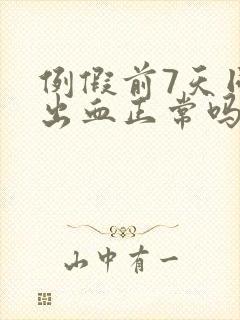 例假前7天
出血正常吗
山中有一